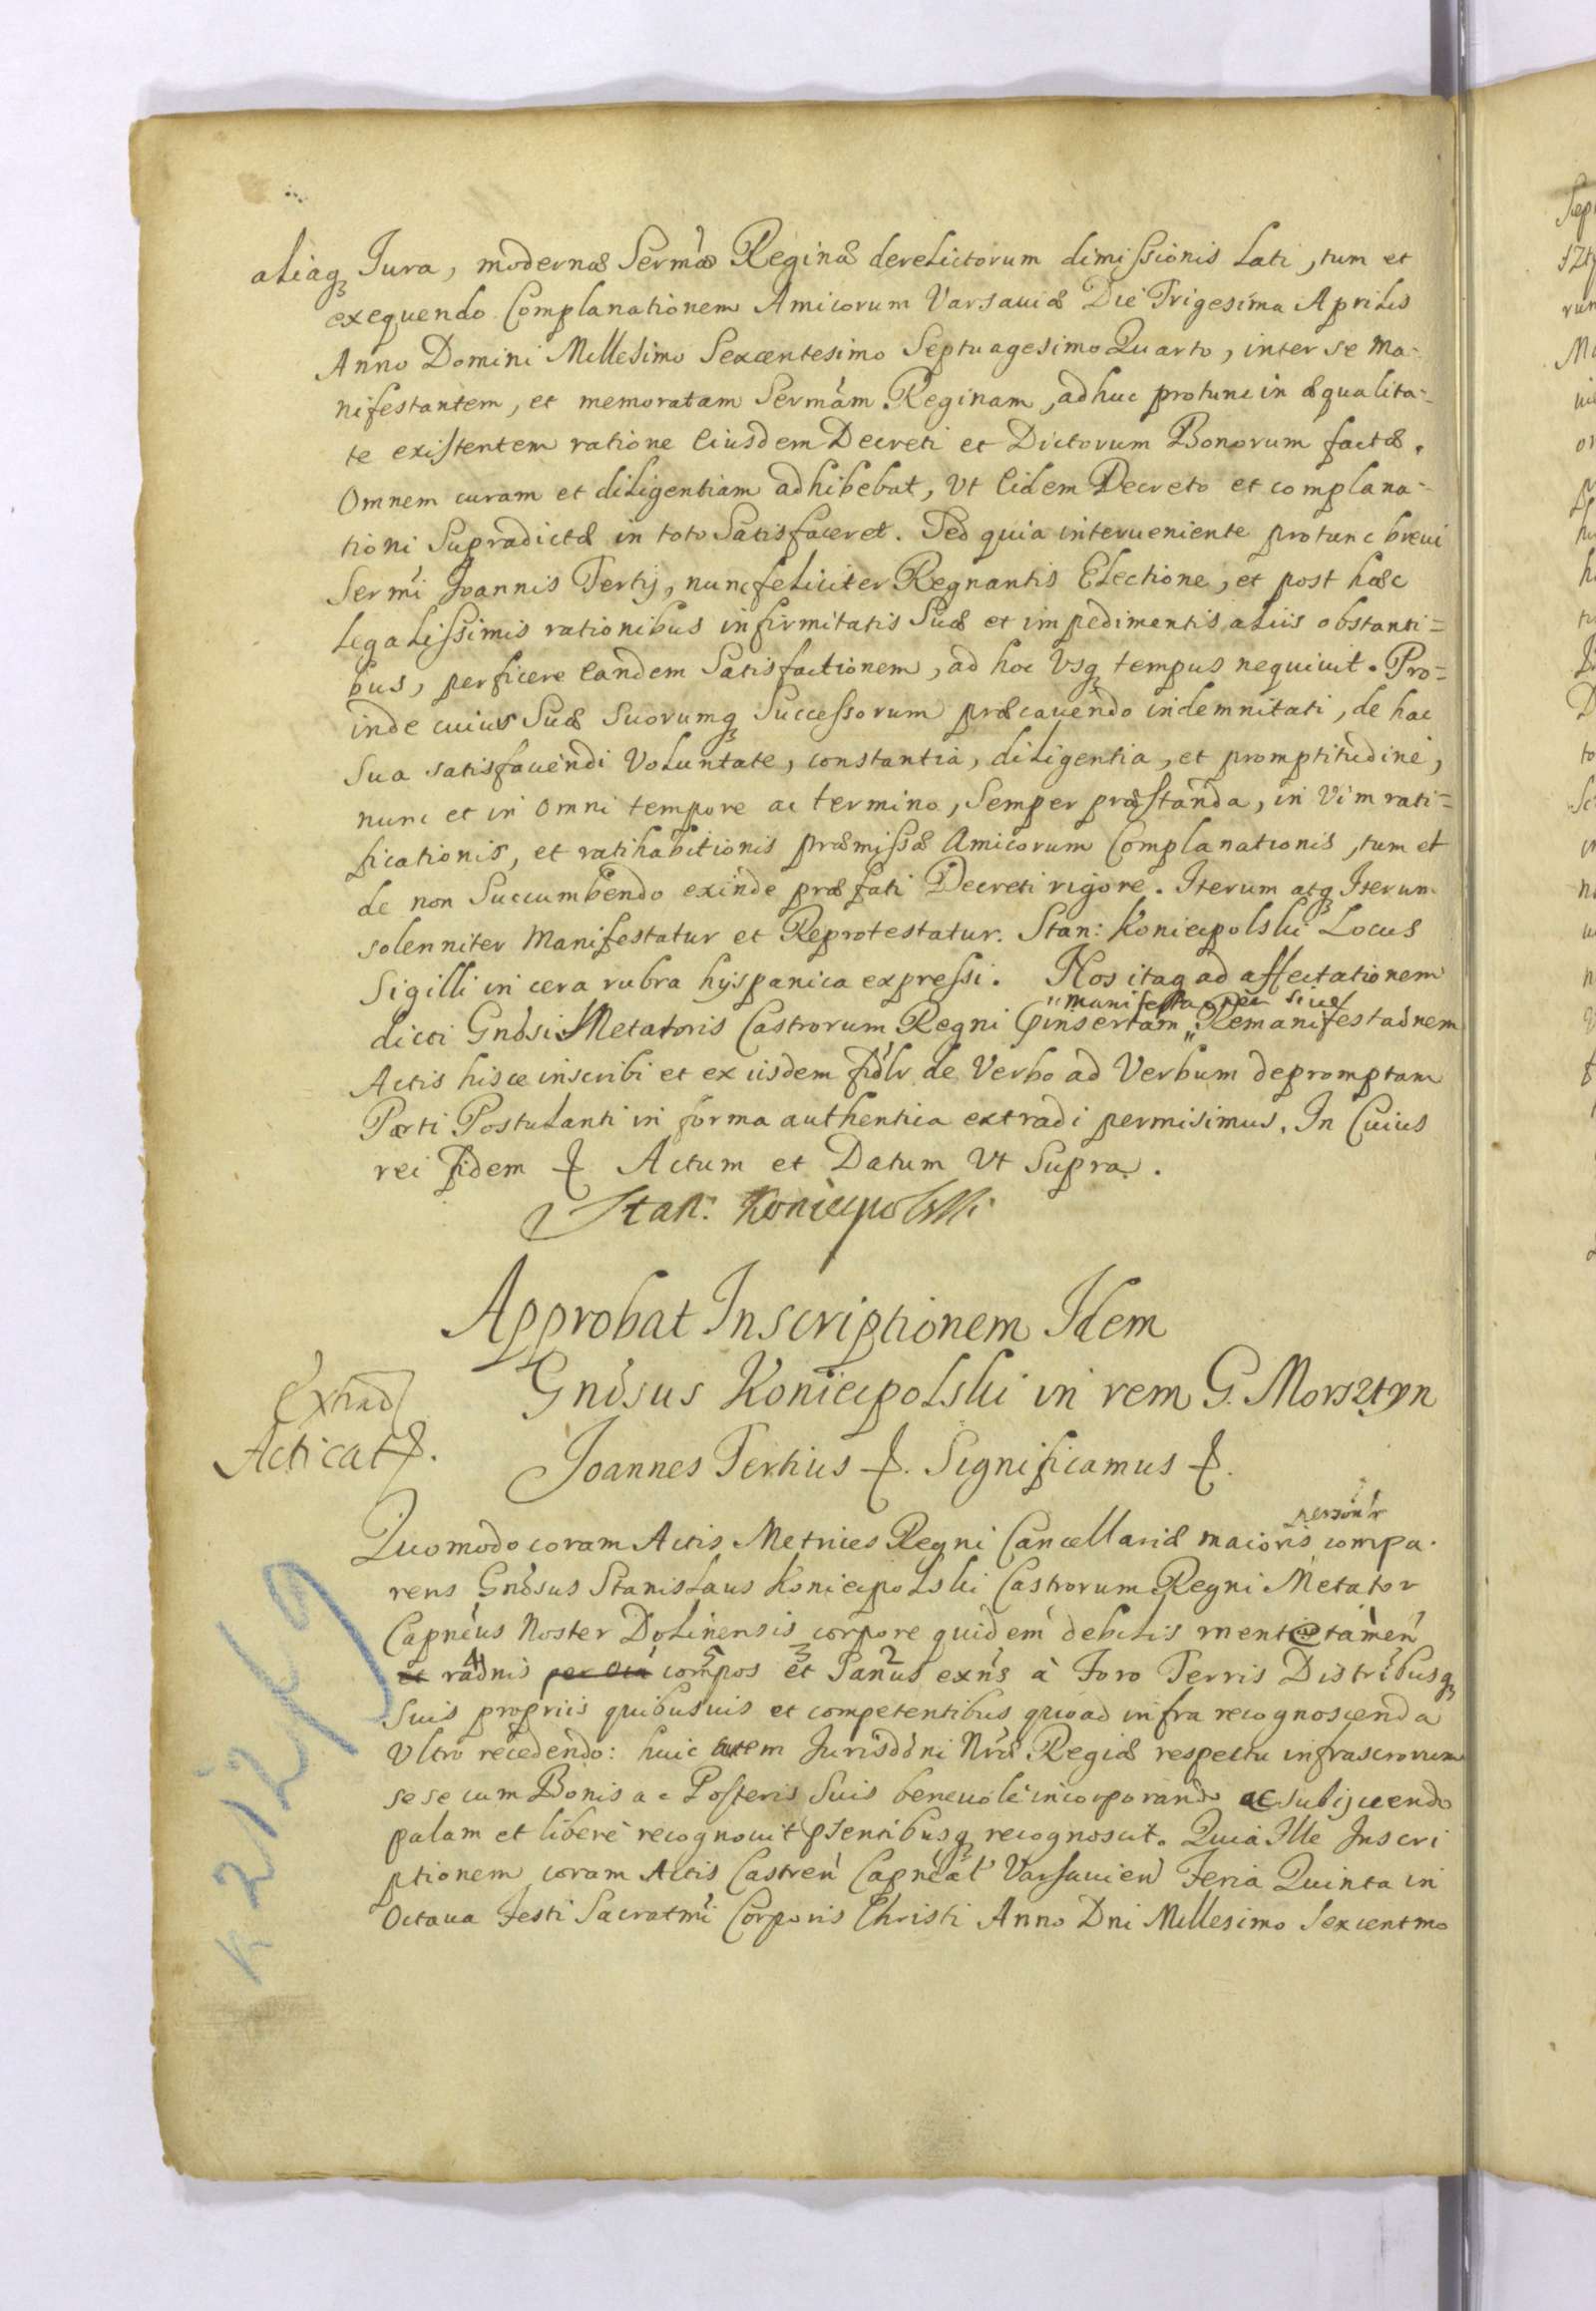 aliaqꝫ Jura, modernæ Sermæ Reginæ derelictorum dimissionis lati, tum et
exequendo Complanationem Amicorum Varsauiæ Die Trigesima Aprilis
Anno Domini Millesimo Sexcentesimo Septuagesimo Quarto, inter se Ma-
nifestantem, et memoratam Sermam Reginam, adhuc protunc in æqualita-
te existentem ratione Eiusdem Decreti et Dictorum Bonorum factæ.
Omnem curam et diligentiam adhibebat, Vt Eidem Decreto et complana-
tioni Supradictæ in toto Satisfaceret. Sed quia interueniente protunc breui
Sermi Joannis Tertij, nunc feliciter Regnantis Electione, et post hæc
legalissimis rationibus infirmitatis Suæ et impedimentis aliis obstanti=
bus, perficere Eandem Satisfactionem, ad hoc Vsqꝫ tempus nequiuit. Pro=
inde cuius Suæ Suorumqꝫ Successorum præcauendo indemnitati, de hac
Sua satisfaciendi Voluntate, constantia, diligentia, et promptitudine,
nunc et in omni tempore ac termino, Semper præstanda, in Vim rati=
ficationis, et ratihabitionis præmissæ Amicorum Complanationis, tum et
de non Succumbendo exinde præfati Decreti rigore. Iterum atqꝫ Iterum
solenniter Manifestatur et Reprotestatur. Stan: Koniecpolski Locus
Sigilli in cera rubra hyspanica expressi. Nos itaqꝫ ad affectationem
dicti Gnosi Metatoris Castrorum Regni pinsertam Remanifestaonem
Actis hisce inscribi et ex iisdem fidlr de Verbo ad Verbum depromptam
Parti Postulanti in forma authentica extradi permisimus. In Cuius
rei fidem ꝭ Actum et Datum Vt Supra.
Stan: Koniecpolski
Approbat Inscriptionem Idem
Gnosus Koniecpolski in rem G. Morsztyn
Extrad
Acticat ꝭ.
Joannes Tertius ꝭ. Significamus ꝭ.
personlr
Quomodo coram Actis Metrices Regni Cancellariæ maioris compa-
rens Gnosus Stanislaus Koniecpolski Castrorum Regni Metator
Capneus Noster Dolinensis corpore quidem debilis mente tamen
4 5 3 2
et raonis per oia compos et Sanus exns à Foro Terris Districtibusqꝫ
Suis propriis quibusuis et competentibus quoad infra recognoscenda
Vltro recedendo: huic autem Jurisdoni Nræ Regiæ respectu infrascrorum
sese cum Bonis ac Posteris Suis beneuole incorporando ac subijcendo
palam et libere recognouit psentibusqꝫ recognoscit. Quia Ille Inscri
ptionem coram Actis Castren Capneal Varsauien Feria Quinta in
Octaua Festi Sacratmi Corporis Christi Anno Dni Millesimo Sexcentmo